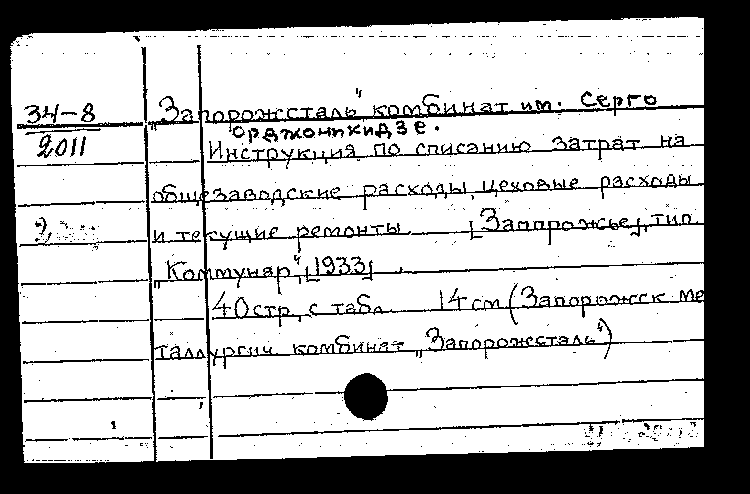 34-8
2011
„Запорожсталь" комбинат им. Серго
Орджоникидзе.
Инструкция по списанию затрат на
общезаводские расходы, цеховые расходы
и текущие ремонты. [Запорожье], тип.
„Коммунар", [1933].
40 стр. с табл. 14 см (Запорожск ме
таллургич комбинат „Запорожсталь")
2